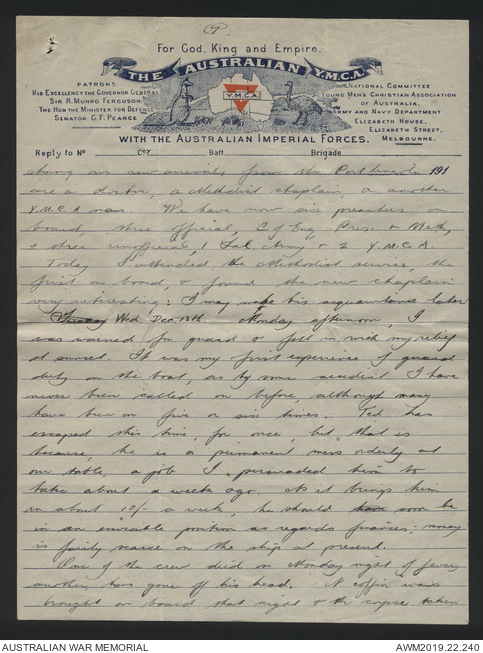 (9)
For God, King and Empire.
THE AUSTRALIAN Y.M.C.A.
Y.M.C.A
PATRONS
HIS EXCELLENCY THE GOVERNOR GENERAL
SIR R. MUNRO FERGUSON,
THE HON THE MINISTER FOR DEFENCE
SENATOR G. F. PEARCE
NATIONAL COMMITTEE
YOUNG MEN'S CHRISTIAN ASSOCIATION
OF AUSTRALIA,
ARMY AND NAVY DEPARTMENT
ELIZABETH HOUSE,
ELIZABETH STREET,
MELBOURNE.
WITH THE AUSTRALIAN IMPERIAL FORCES.
Reply to No Coy Batt Brigade
191
among our new arrivals from the Port Lincoln
are a doctor, a Methodist chaplain, & another
Y.M.C.A man. We have now six preachers on
board, three official, C of Eng Pres. & Meth,
& three unofficial, 1 Sal. Army & 2 Y.M.C.A.
Today I attended the Methodist service, the
first on board, & found the new chaplain
very interesting: I may make his acquaintance later
Tuesday Wed. Dec. 13th Monday afternoon, I
was warned for guard & fell in with my relief
at sunset. It was my first experience of guard
duty on the boat, as by some accident I have
never been called on before, although many
have been on five or six times. Ted has
escaped this time, for once, but that is
because, he is a permanent mess orderly at
our table, a job I persuaded him to
take about a week ago. As it brings him
in about 10/- a week, he should have soon be
in an enviable position as regards finances; money
is fairly scarce on the ship at present.
One of the crew died on Monday night of fever,
another has gone off his head. A coffin was
brought on board that night & the corpse taken
AUSTRALIAN WAR MEMORIAL
AWM2019.22.240